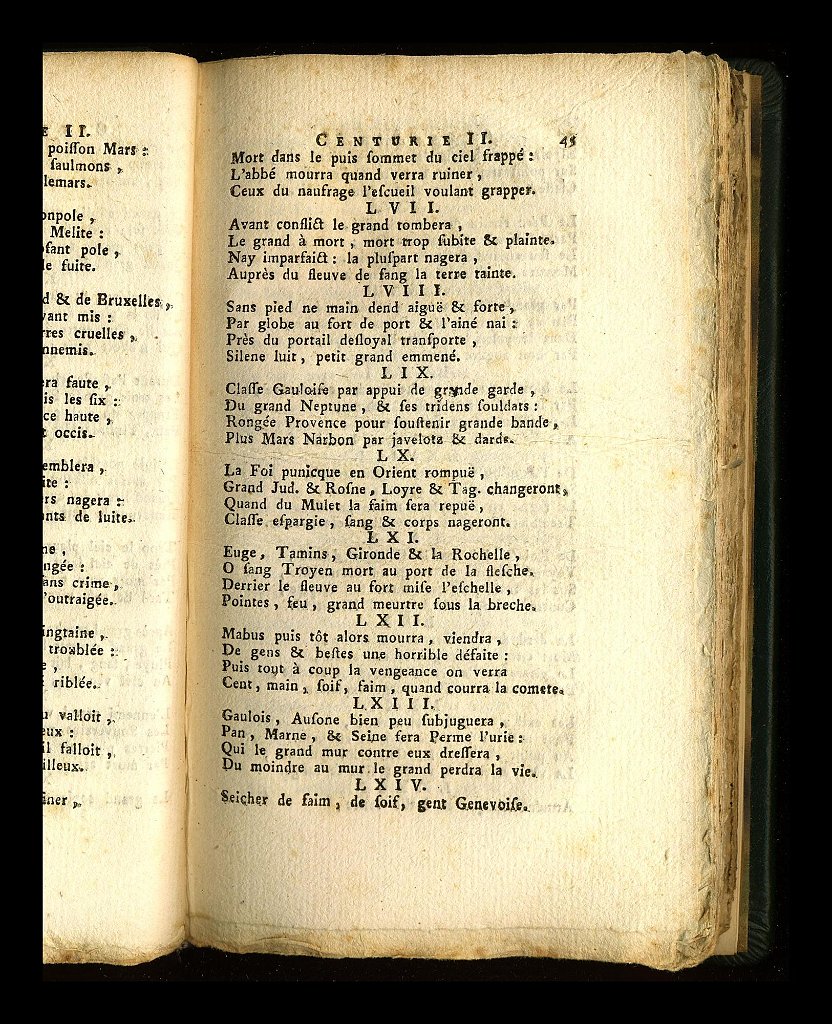 E II.
poiſſon Mars :
ſaulmons ,
lemars.
onpole ,
Melite :
ſant pole ,
le fuite.
d & de Bruxelles ,
vant mis :
rres cruelles ,
nnemis.
era faute ,
is les ſix :
ce haute ,
t occis.
emblera ,
ite :
rs nagera :
nts de luite.
ne ,
ngée :
ans crime ,
'outraigée.
ingtaine ,
troublée :
e ,
riblée.
u valloit ,
eux :
il falloit ,
illeux.
iner ,
CENTURIE II. 45
Mort dans le puis ſommet du ciel frappé :
L'abbé mourra quand verra ruiner ,
Ceux du naufrage l'eſcueil voulant grapper.
LVII.
Avant conflict le grand tombera ,
Le grand à mort , mort trop ſubite & plainte.
Nay imparfaict : la pluſpart nagera ,
Auprès du fleuve de ſang la terre tainte.
LVIII.
Sans pied ne main dend aiguë & forte ,
Par globe au fort de port & l'ainé nai :
Près du portail defloyal tranſporte ,
Silene luit , petit grand emmené.
LIX.
Claſſe Gauloiſe par appui de grande garde ,
Du grand Neptune , & ſes tridens ſouldats :
Rongée Provence pour ſouſtenir grande bande ,
Plus Mars Narbon par javelots & dards.
LX.
La Foi punicque en Orient rompuë ,
Grand Jud. & Roſne , Loyre & Tag. changeront ,
Quand du Mulet la faim ſera repuë ,
Claſſe eſpargie , ſang & corps nageront.
LXI.
Euge , Tamins , Gironde & la Rochelle ,
O ſang Troyen mort au port de la fleſche.
Derrier le fleuve au fort miſe l'eſchelle ,
Pointes , feu , grand meurtre ſous la breche.
LXII.
Mabus puis tôt alors mourra , viendra ,
De gens & beſtes une horrible défaite :
Puis tout à coup la vengeance on verra
Cent , main , ſoif , faim , quand courra la comete.
LXIII.
Gaulois , Auſone bien peu ſubjuguera ,
Pan , Marne , & Seine fera Perme l'urie :
Qui le grand mur contre eux dreſſera ,
Du moindre au mur le grand perdra la vie.
LXIV.
Seicher de faim , de ſoif , gent Genevoiſe.